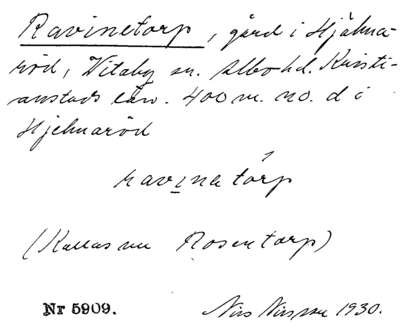 Ravinetorp, gård i Hjälma-
röd, Vitaby sn. Albo hd. Kristi-
anstads län. 400 m. no. d i
Hjelmaröd
ravinetorp
(Kallas nu Rosentorp)
Nr 5909. Nils Nilsson 1930.